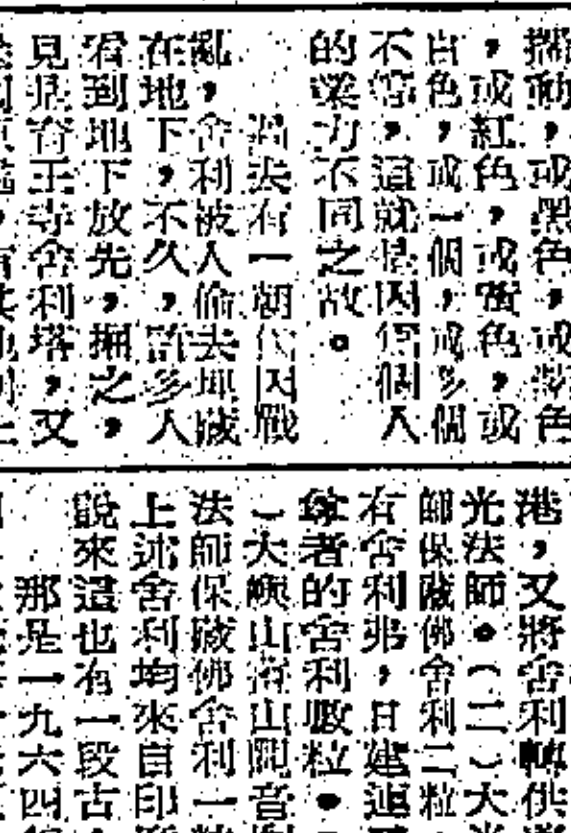 搖動，或黑色，或彩色
，或紅色，或黃色，或
白色，或一個，或多個
不等，這就是因個個人
的業力不同之故。
過去有一朝代因戰
亂，舍利被人偷去埋藏
在地下，不久，許多人
看到地下放光，掘之，
見是育王寺舍利塔，又
港，又將舍利轉供
光法師。（二）大
師保藏佛舍利二粒
有舍利弗，目建連
尊者的舍利數粒。
（大嶼山 山觀音
法師保藏佛舍利一粒
上述舍利均來自印
說來這也有一段古
那是一九六四